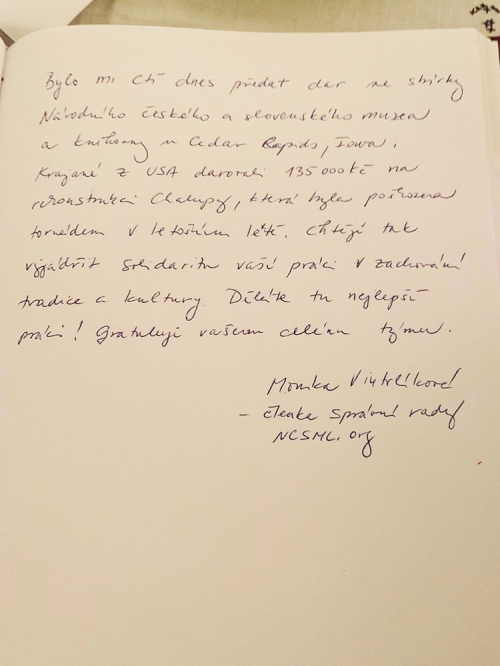 Bylo mi ctí dnes předat dar ze sbírky
Národního českého a slovenského muzea
a knihovny v Cedar Rapids, Iowa.
Krajané z USA darovali 135 000 Kč na
rekonstrukci Chalupy, která byla poškozena
tornádem v letošním létě. Chtějí tak
vyjádřit solidaritu vaší práci v zachování
tradice a kultury. Děláte tu nejlepší
práci! Gratuluji vašemu celému týmu.
Monika
– členka správní rady
NCSML.org